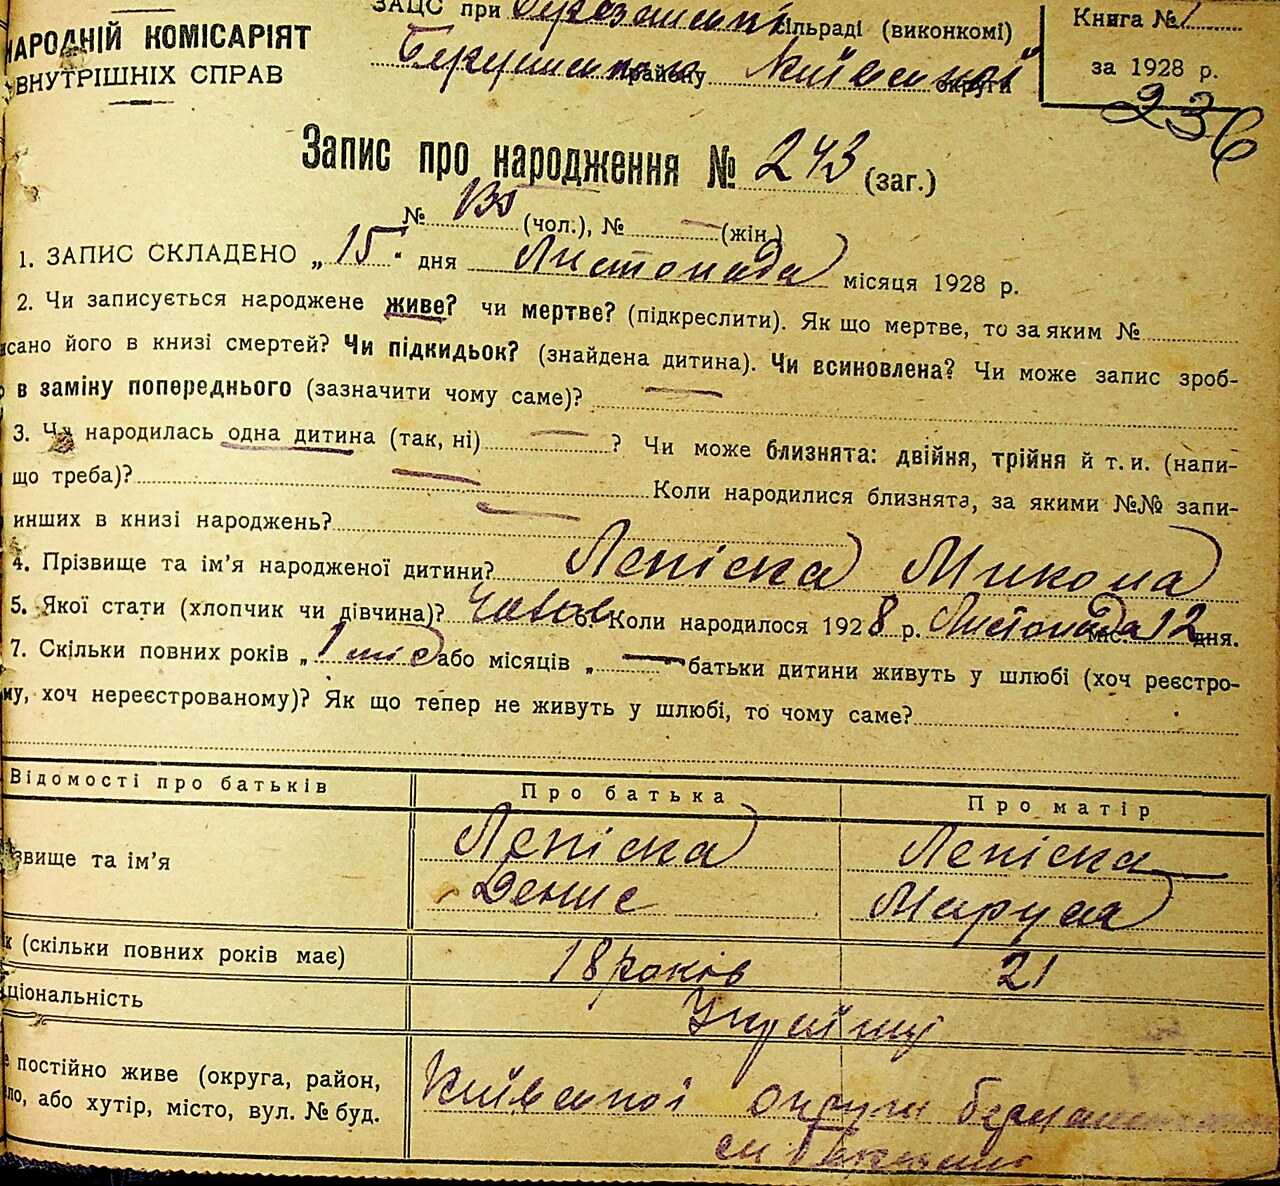 ЗАЦС при сільраді (виконкомі)
Книга № 1
НАРОДНІЙ КОМІСАРІЯТ
ВНУТРІШНІХ СПРАВ
району Київської округи
за 1928 р.
236
Запис про народження № 243 (заг.)
№ 130 (чол.), № — (жін.)
1. ЗАПИС СКЛАДЕНО „ 15 " дня Листопада місяця 1928 р.
2. Чи записується народжене живе? чи мертве? (підкреслити). Як що мертве, то за яким №
исано його в книзі смертей? Чи підкидьок? (знайдена дитина). Чи всиновлена? Чи може запис зроб-
о в заміну попереднього (зазначити чому саме)? —
3. Чи народилась одна дитина (так, ні) — ? Чи може близнята: двійня, трійня й т. и. (напи-
що треба)? — Коли народилися близнята, за якими №№ запи-
инших в книзі народжень? —
4. Прізвище та ім'я народженої дитини? Лепіска Микола
5. Якої стати (хлопчик чи дівчина)? 6. Коли народилося 1928 р. Листопада міс. 12 дня.
7. Скільки повних років „ 1 міс або місяців „ — батьки дитини живуть у шлюбі (хоч реєстро-
му, хоч нереєстрованому)? Як що тепер не живуть у шлюбі, то чому саме?
Відомості про батьків Про батька Про матір
звище та ім'я Лепіска Лепіска
Денис Маруся
к (скільки повних років має) 18 років 21
ціональність Українці
е постійно живе (округа, район, Київської округи
ло, або хутір, місто, вул. № буд.